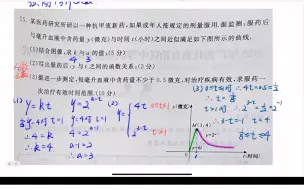 15. 某医药研究所研以一种抗甲流新药,如果成年人按规定的剂量服用,据监测:服药后
与毫升血液中的含药量y(微克)与时间t(小时)之间近似满足如下图所示的曲线.
(1)结合图像,求k与a的值;(5分)
4 3
(2)写出服药后y与t之间的函数关系;(5分)
(3)据进一步测定,每毫升血液中含药量不少于0.5微克,对治疗疾病有效,求服药一
次治疗有效时间范围.(10分)
(1) y=kt
当y=4时 t=1
∴4=k
∴k=4
y=2^{a-t}
y=4时 t=1
4=2^{a-1}
a-1=2
∴a=3
(2)
y={4t 0≤t≤1
2^{3-t} t>1
y(微克)
M(1,4)
(3) 0≤t≤1
∴4t=0.5=½
∴t=⅛
3-t=-1 t=4
≤t≤4
t(时间)